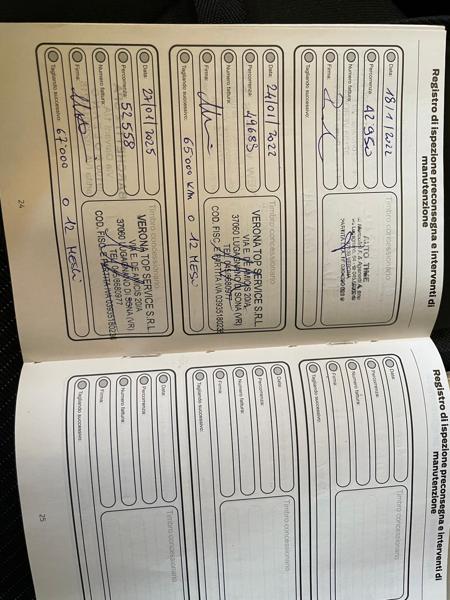 Registro di ispezione preconsegna e interventi di
manutenzione
Data: 18/1/2022
Percorrenza: 42950
Numero fattura:
Firma:
Tagliando successivo:
Timbro concessionario
AUTO TIME
Data: 24/01/2022
Percorrenza: 49683
Numero fattura:
Firma:
Tagliando successivo: 65000 Km o 12 MESI
Timbro concessionario
VERONA TOP SERVICE S.R.L.
VIA E. DE AMICIS 20/A
37060 LUGAGNANO DI SONA (VR)
COD. FISC. E PARTITA IVA
Data: 27/01/2025
Percorrenza: 52558
Numero fattura:
Firma:
Tagliando successivo: 67'000 o 12 MESI
Timbro concessionario
VERONA TOP SERVICE S.R.L.
VIA E. DE AMICIS 20/A
37060 LUGAGNANO DI SONA (VR)
COD. FISC. E PARTITA IVA
24
Registro di ispezione preconsegna e interventi di
manutenzione
Data:
Percorrenza:
Numero fattura:
Firma:
Tagliando successivo:
Timbro concessionario
Data:
Percorrenza:
Numero fattura:
Firma:
Tagliando successivo:
Timbro concessionario
Data:
Percorrenza:
Numero fattura:
Firma:
Tagliando successivo:
Timbro concessionario
25